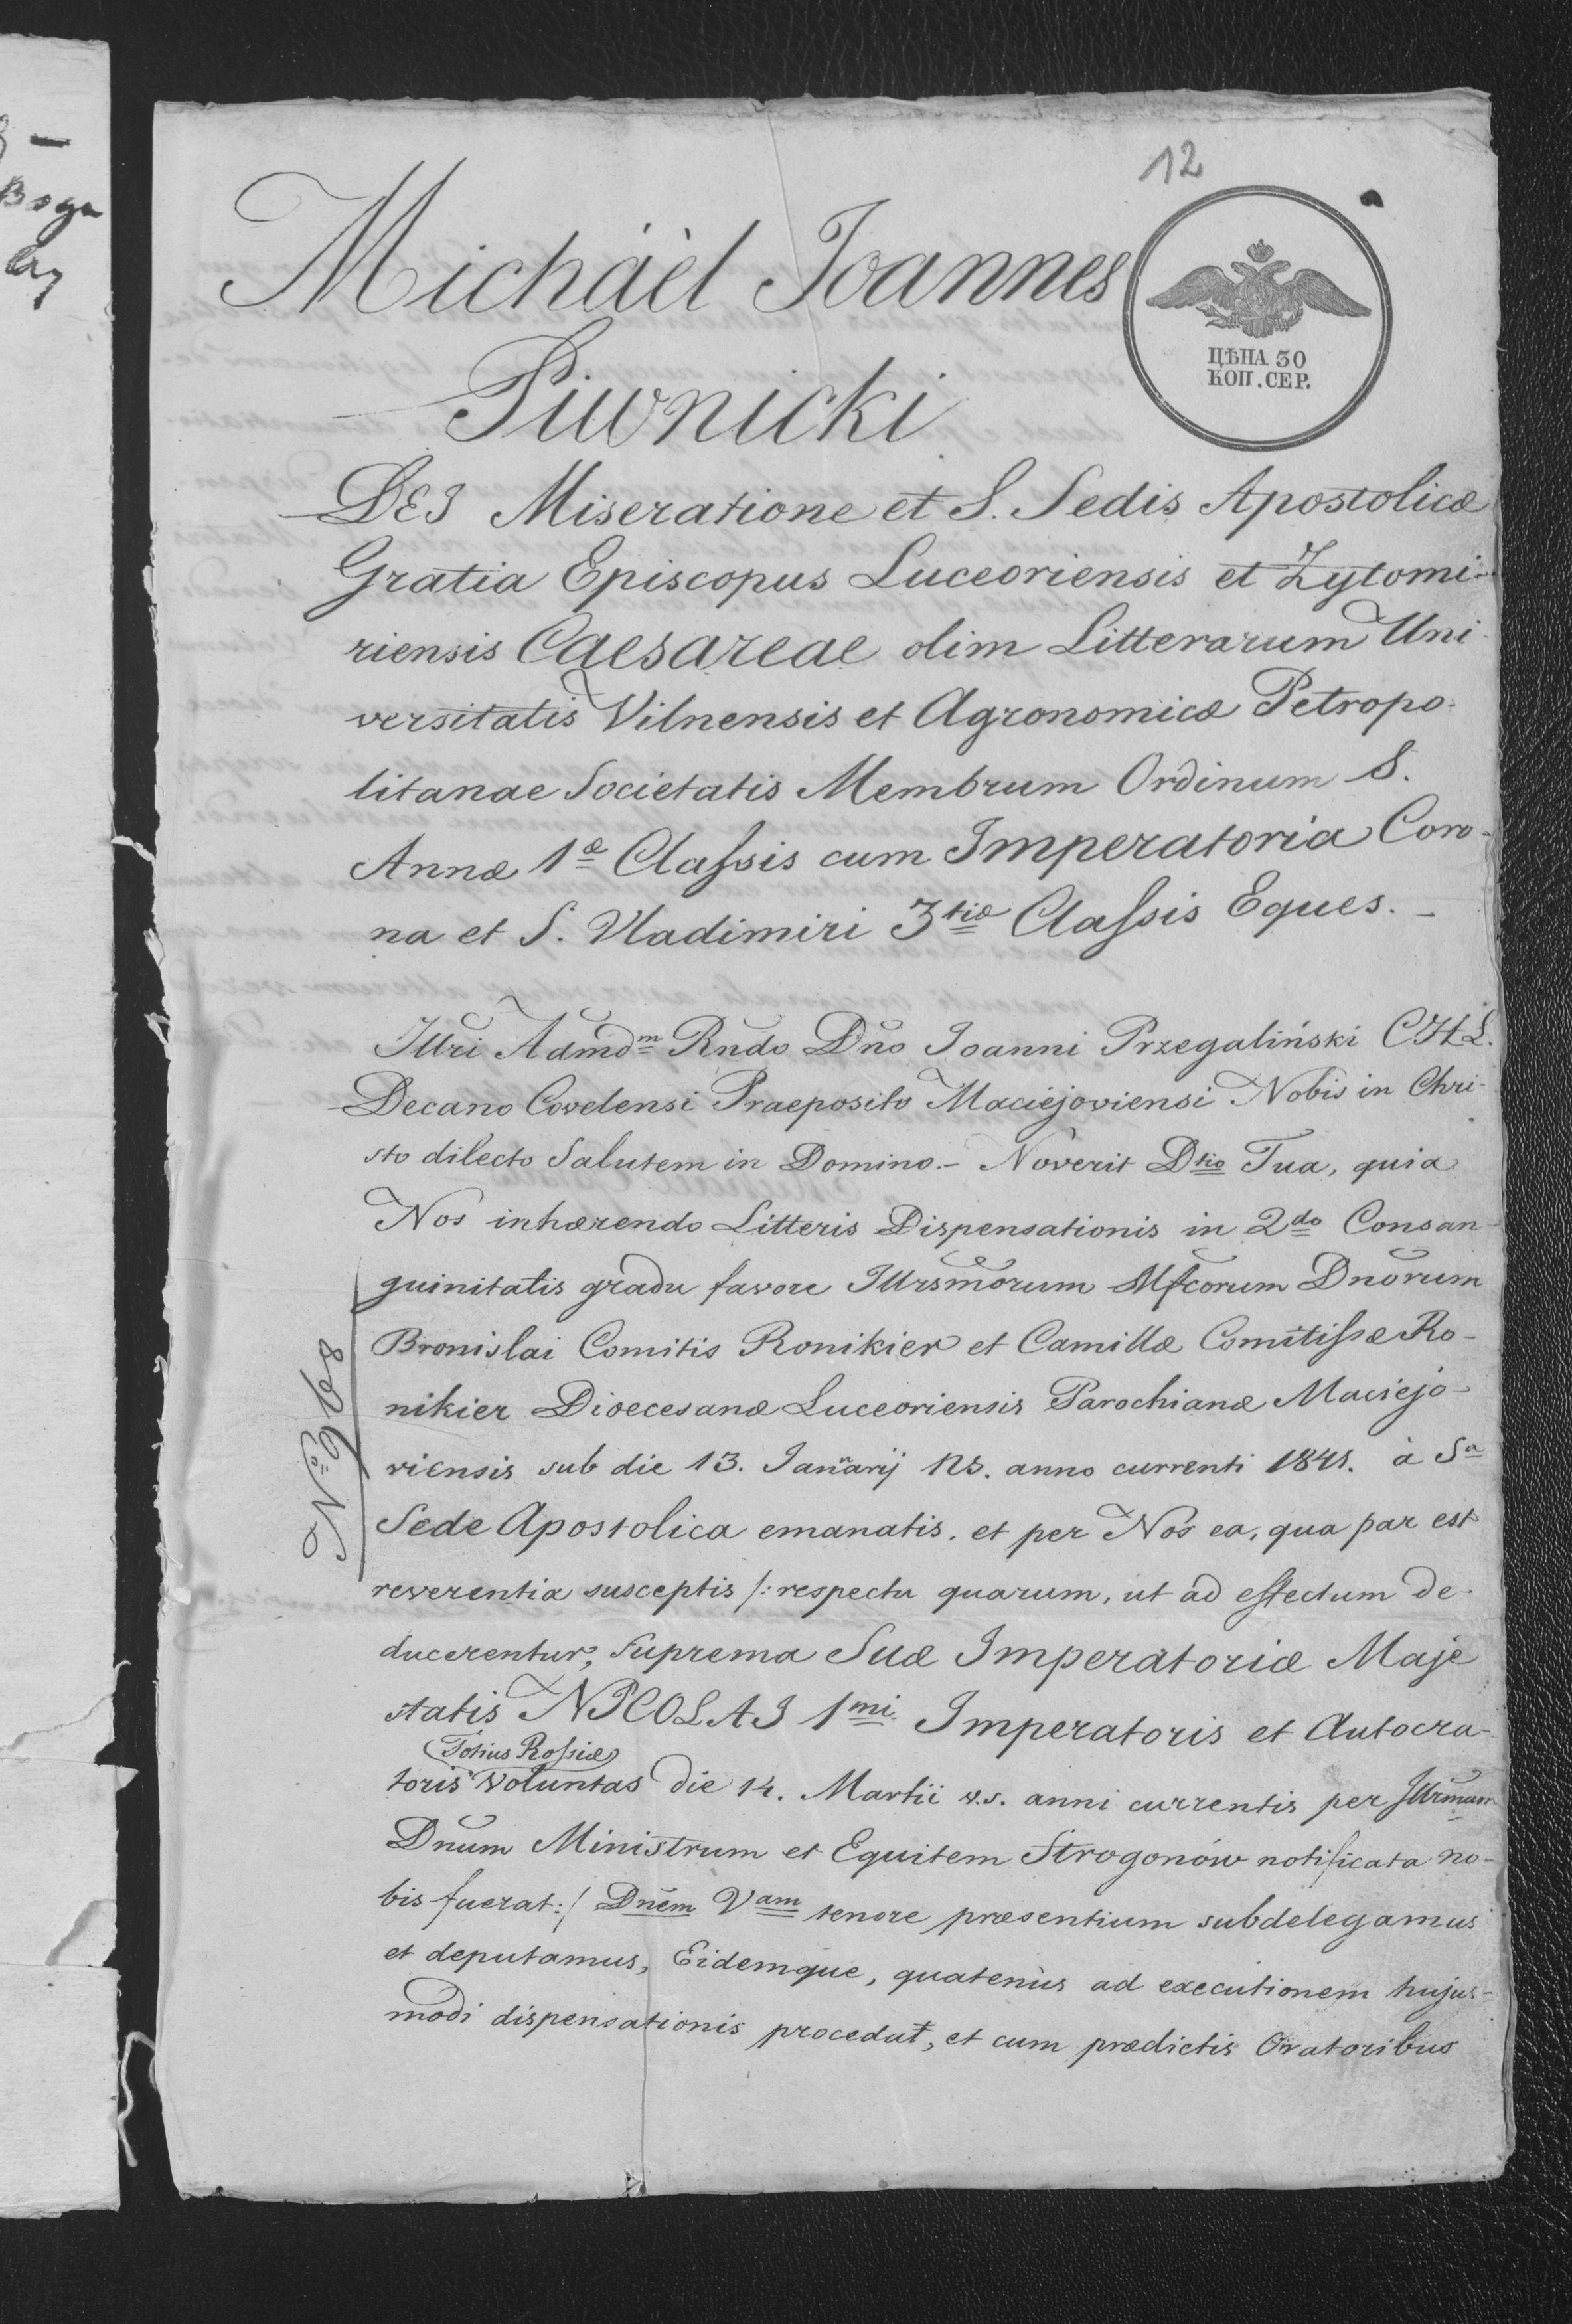 12
Michäèl Joannes
Piwnicki
ЦѢНА 30
КОП. СЕР.
DEI Miseratione et S. Sedis Apostolicæ
Gratia Episcopus Luceoriensis et Zytomi-
riensis Caesareae olim Litterarum Uni-
versitatis Vilnensis et Agronomicæ Petropo-
litanae Societatis Membrum Ordinum S.
Annæ 1æ Classis cum Imperatoria Coro-
na et S. Vladimiri 3tiæ Classis Eques. -
Illri Admdm Rndo Dno Joanni Przegaliński C.H.L.
Decano Covelensi Praeposito Maciejoviensi Nobis in Chri-
sto dilecto Salutem in Domino. - Noverit Dtio Tua, quia
Nos inhærendo Litteris Dispensationis in 2do Consan-
guinitatis gradu favore Illrsmorum Mfcorum Dnorum
Bronislai Comitis Ronikier et Camillæ Comitissæ Ro-
nikier Dioecesanæ Luceoriensis Parochianæ Maciejo-
viensis sub die 13. Januarij ns. anno currenti 1841. à Sa
Sede Apostolica emanatis, et per Nos ea, qua par est
reverentia susceptis /: respectu quarum, ut ad effectum de-
ducerentur, Suprema Suæ Imperatoriæ Maje
statis NICOLAI 1mi Imperatoris et Autocra-
(Totius Rossiæ)
toris voluntas die 14. Martii v.s. anni currentis per Illrmum
Dnum Ministrum et Equitem Strogonów notificata no-
bis fuerat :/ Dnem Vam tenore præsentium subdelegamus
et deputamus, Eidemque, quatenùs ad executionem hujus-
modi dispensationis procedat, et cum prædictis Oratoribus